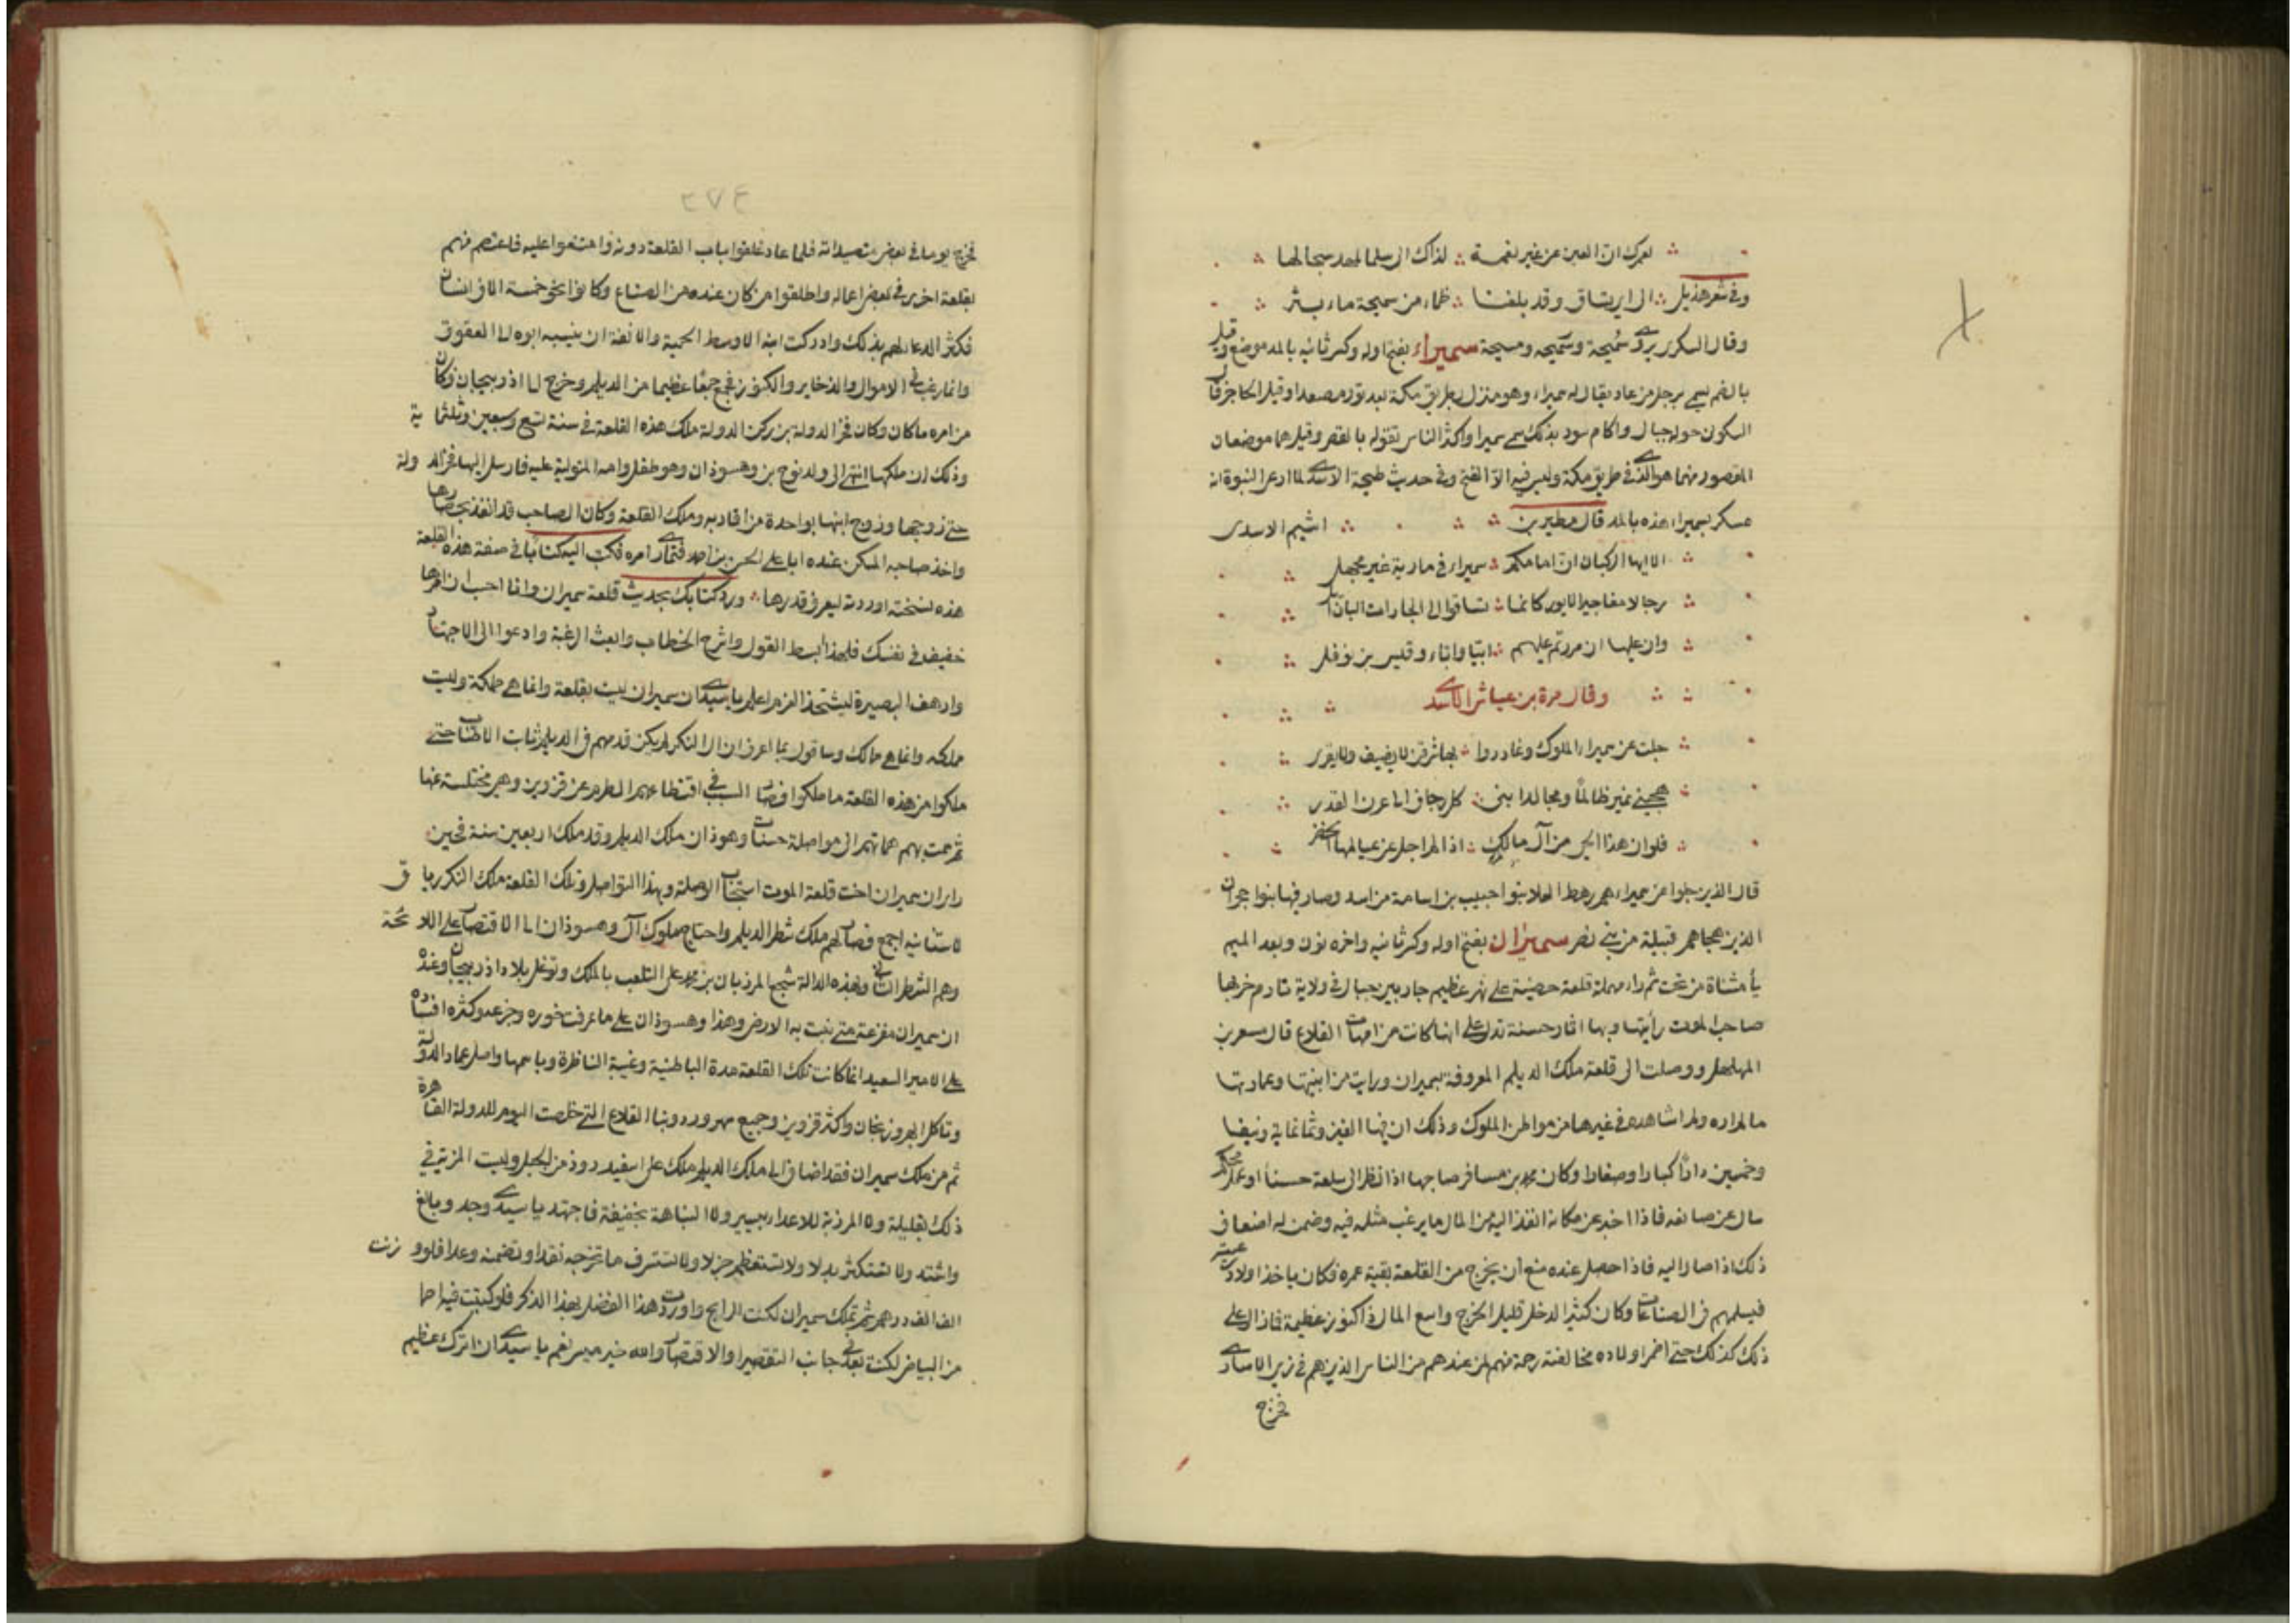 لعمرك ان العين عن غير نعمة لذاك الى سلما لمهد سجالها
وفى شعر هذيل الى اى نساق وقد بلغنا ظماء من سميحة ماء بثر
وقال السكرى يروى سُمَيحة وسَميحه ومسيحة سميراء بفتح اوله وكسر ثانيه بالمد موضع وقيل
بالضم يسمى برجل من عاد يقال له سميراء وهو منزل بطريق مكة بعد توز مصعدا وقبل الحاجز قال
السكون حوله جبال واكام سود بذلك سمى سميرا واكثر الناس تقوله بالقصر وقيل هما موضعان
المقصور منهما هو الذى فى طريق مكة وليس فيه الا الفتح وفى حديث طليحة الاسدى لما ادعى النبوة انه
عسكر بسميراء هذه بالمد قال مطير بن اشيم الاسدى
الا ايها الركبان ان امامكم سميراء فى ماء رية غير مجهل
رجالا مفاجير الايور كانما تساقوا الى الجارات البان
وان عليها ان مررتم عليهم ابيا واباء وقيس بن نوفل
وقال مرة بن عياش الاسدى
جلت عن سميراء الملوك وغادروا بها شر قن لا يضيف ولا يقرى
هجينى نمير ظالما ومجالدا بنى كل زحاف الى عرن القدر
فلو ان هذا الحى من آل مالك اذا لم اجلى عن عيالهما الخضر
قال الذين جلوا عن سميراء هم رهط العلاء بنوا حبيب بن اسامة من اسد وصار فيها بنوا حجران
الذين هجاهم قبيلة من بنى نصر سميران بفتح اوله وكسر ثانيه واخره نون وبعد الميم
يأ مثناة من تحت ثم راء مهملة قلعة حصينة على نهر عظيم جار بين جبال فى ولاية تارم خربها
صاحب الموت رأيتها وبها اثار حسنة تدل على انها كانت من امهات القلاع قال مسعر بن
المهلهل ووصلت الى قلعة ملك الديلم المعروفة بسميران ورايت من ابنيتها وعمارتها
ما لم اره ولم اشاهده فى غيرها من مواطن الملوك وذلك ان فيها الفين وثمانماية ونيفا
وخمسين دارًا كبارا وصغارا وكان محمد بن مسافر صاحبها اذا نظر الى سلعة حسنا او عمل محكم
سال عن صانعه فاذا اخبر عن مكانه انفذ اليه من المال ما يرغب مثله فيه وضمن له اضعاف
ذلك اذا صار اليه فاذا حصل عنده منع أن يخرج من القلعة بقية عمره فكان ياخذ اولاد رعيته
فيسلمهم فى الصناعات وكان كثير الدخل قليل الخرج واسع المال ذا كنوز عظيمة فما زال على
ذلك كذلك حتى اضمر اولاده مخالفته رحمة منهم لمن عندهم من الناس الذين هم فى زى الاسارى
فخرج
٢٧٤
فخرج يوما فى بعض متصيداته فلما عاد غلقوا باب القلعة دونه وامتنعوا عليه فاعتصم منهم
بقلعة اخرى فى بعض اعماله واطلقوا من كان عنده من الصناع وكانوا نحو خمسة الاف انسان
فكثر الدعاء لهم بذلك وادركت ابنه الاوسط الحمية والانفة ان ينسبه ابوه الى العقوق
وانما رغب فى الاموال والذخاير والكنوز فجمع جمعًا عظيما من الديلم وخرج الى اذربيجان فكان
من امره ما كان وكان فخر الدولة بن ركن الدولة ملك هذه القلعة فى سنة تسع وسبعين وثلثماية
وذلك ان ملكها انتهى الى ولد نوح بن وهسوذان وهو طفل وامه المتولية عليه فارسل اليها فخر الدولة
حتى تزوجها وزوج ابنها بواحدة من اقاربه وملك القلعة وكان الصاحب قد انفذ بحصارها
واخذ صاحبه المسكن عنده ابا على الحسن بن احمد فتمادى امره فكتب اليه كتابا فى صفة هذه القلعة
هذه نسخته اوردته ليعرف قدرها ورد كتابك بحديث قلعة سميران وانا احب ان امرها
خفيف فى نفسك فلهذا ابسط القول واشرح الخطاب وابعث الرغبة وادعوا الى الاجتهاد
وارهف البصيرة ليشتحذ العزم اعلم يا سيدى ان سميران ليست بقلعة وانما هى مملكة وليست
مملكه وانما هى ممالك وساقول بما اعرف ان ال النكر لم يكن قدمهم فى الديلم ثابت الاطناب حتى
ملكوا من هذه القلعة ما ملكوا فصار السبب فى اقتطاعهم الطرم عن قزوين وهى مختلسة عنها
ثم سمت بهم هماتهم الى مواصلة حسنات وهوذان ملك الديلم وقد ملك اربعين سنة فحين
راى ان سميران اخت قلعة الموت استجاب الوصلة وبهذا التواصل وتلك القلعة ملك النكر باقى
لاستانيه اجمع فصار لهم ملك شطر الديلم واحتاج ملوك آل وهسوذان الى الاقتصار على اللائحة
وهم الشطر الثانى وبهذه الدالة شجع المرزبان بن محمد على التلعب بالملك وتوغل بلاد اذربيجان وعنده
ان سميران مفزعة متى نبت به الارض وهذا وهسوذان على ما عرفت خوره وجزعه وكثره افساده
على الامير السعيد انما كانت تلك القلعة مدة الباطنية وغيبة الناظرة وباسمها واصل عماد الدولة
وتاكل ابهر وزنجان واكثر قزوين وجميع سهرورد وبنا القلاع التى خلصت اليوم للدولة القاهرة
ثم من ملك سميران فقد اضاف الى ملك الديلم ملك على اسفيد روذ من الجبل وليست المزية فى
ذلك بقليلة ولا المرزبة للاعداء بيسير ولا النباهة بخفيفة فاجتهد يا سيدى وجد وبالغ
واشتد ولا تستكثر بدلا ولا تستعظم جزلا ولا تستسرف ما تخرجه نقدا وتضمنه وعدا فلو وزنت
الف الف درهم ثم تملك سميران لكنت الرابح واوردت هذا الفضل بهذا الذكر فلو كتبت فيه احمالا
من البياض لكنت بعد فى جانب التقصير والاقتصار والله خير ميسر نعم يا سيدى ان اترك عظيم